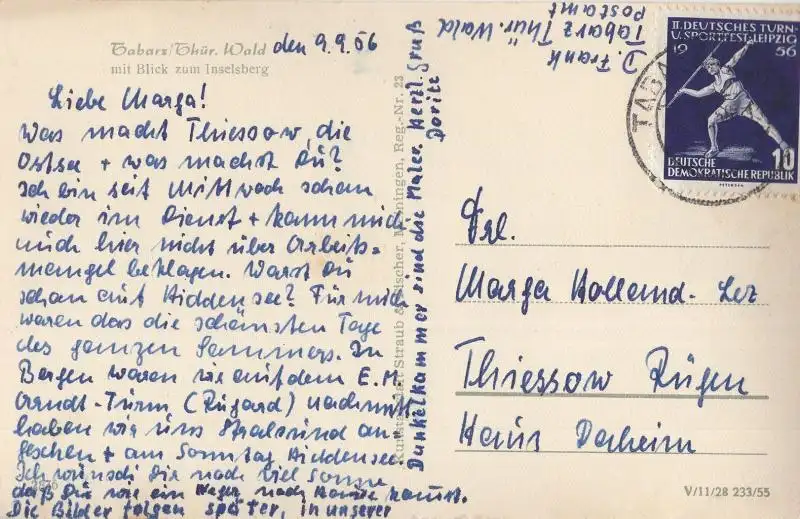 Tabarz/Thür. Wald
mit Blick zum Inselsberg
den 9.9.56
Liebe Marga!
Was macht Thiessow, die
Ostsee + was machst Du?
Ich bin seit Mittwoch schon
wieder im Dienst + kann mich
auch hier nicht über Arbeits-
mangel beklagen. Warst Du
schon auf Hiddensee? Für mich
waren das die schönsten Tage
des ganzen Sommers. In
Bergen waren wir auf dem E.M.
Arndt-Turm (Rugard) nachmitt.
haben wir uns Stralsund an-
gesehen + am Sonntag Hiddensee.
Ich wünsch Dir noch viel Sonne
daß Du wie ein Neger nach Hause kommst.
Die Bilder folgen später, in unserer
Dunkelkammer sind die Maler. Herzl. Gruß
Dorits
Straub & Fischer, Meiningen, Reg.-Nr. 23
D. Frank
Tabarz Thür. Wald
Postamt
II. DEUTSCHES TURN-
U. SPORTFEST LEIPZIG
1956
10
DEUTSCHE
DEMOKRATISCHE REPUBLIK
TABA
Frl.
Marga Holland-Letz
Thiessow Rügen
Haus Daheim
V/11/28 233/55